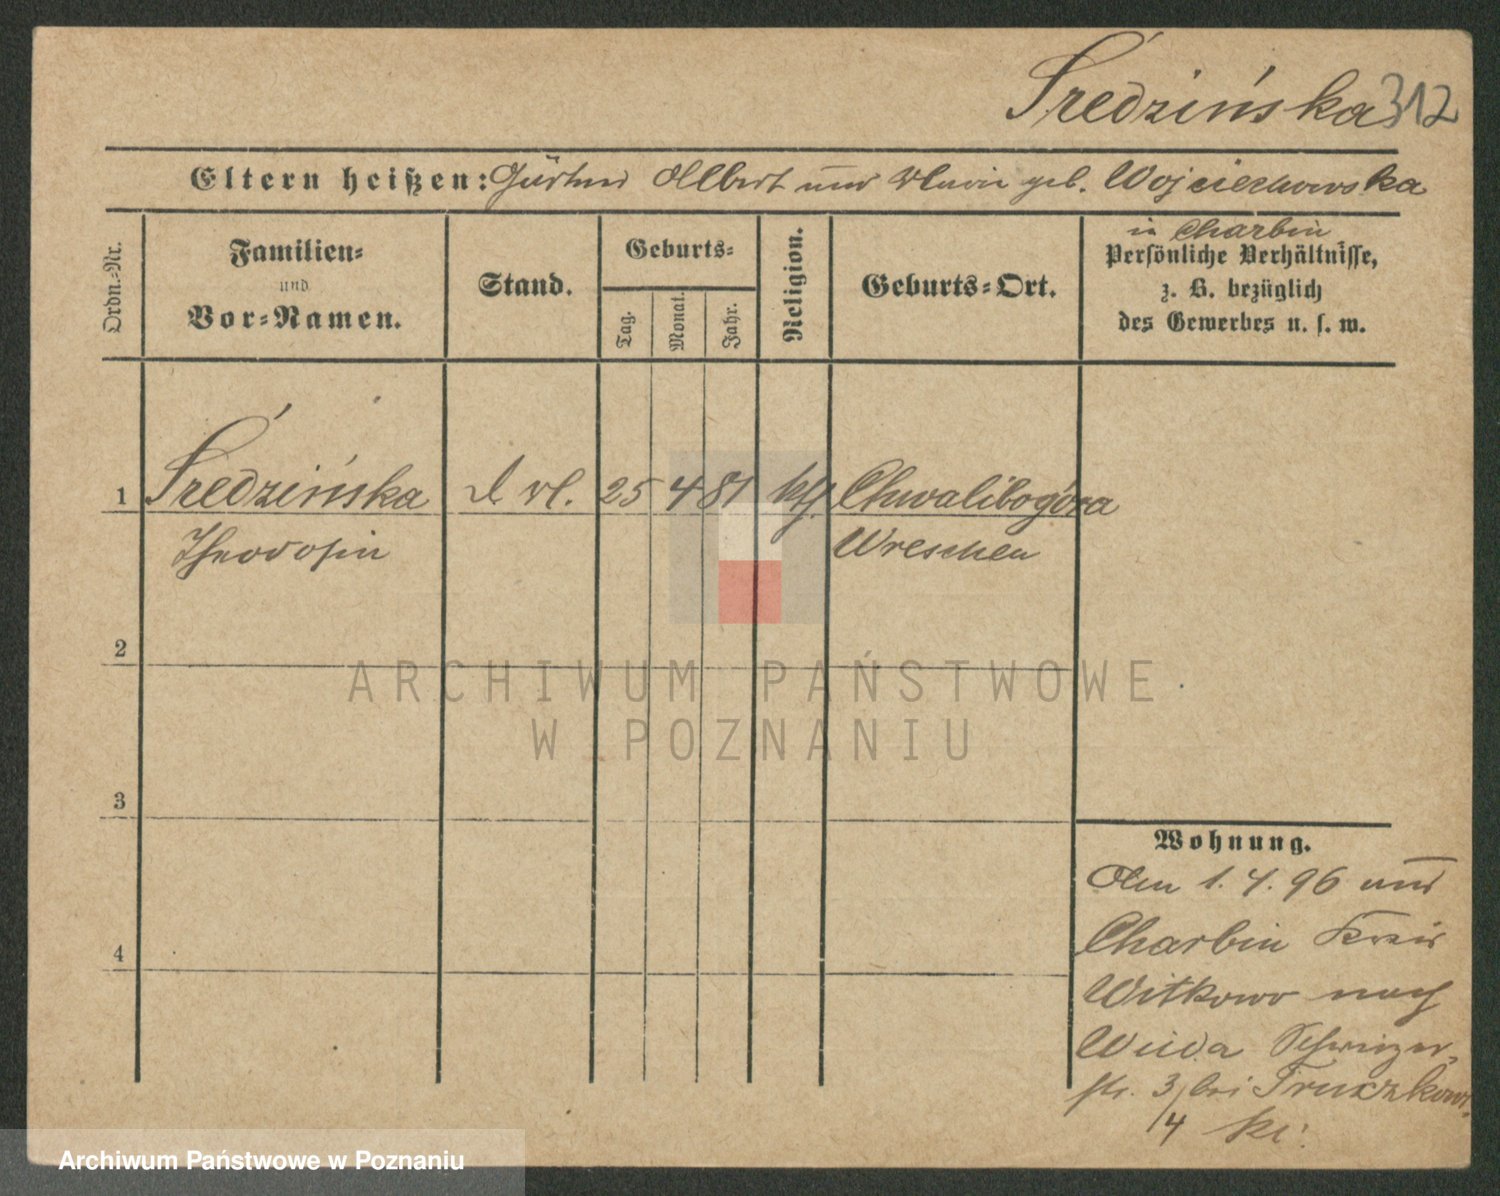 Średzińska 312
Eltern heißen: Gärtner Albert und Marie geb. Wojciechowska
in Charbin
Ordn.-Nr.
Familien-
und
Vor-Namen.
Stand.
Geburts-
Tag.
Monat.
Jahr.
Religion.
Geburts-Ort.
Persönliche Verhältnisse,
z. B. bezüglich
des Gewerbes u. s. w.
1 Średzińska 25 4 81 kth. Chwalibogóra
Theodosia Wreschen
2
3
4
Wohnung.
Am 1. 4. 96 aus
Charbin Kreis
Witkowo nach
Wilda
str. 3/4 bei Truszkows-
ki.
ARCHIWUM PAŃSTWOWE
W POZNANIU
Archiwum Państwowe w Poznaniu